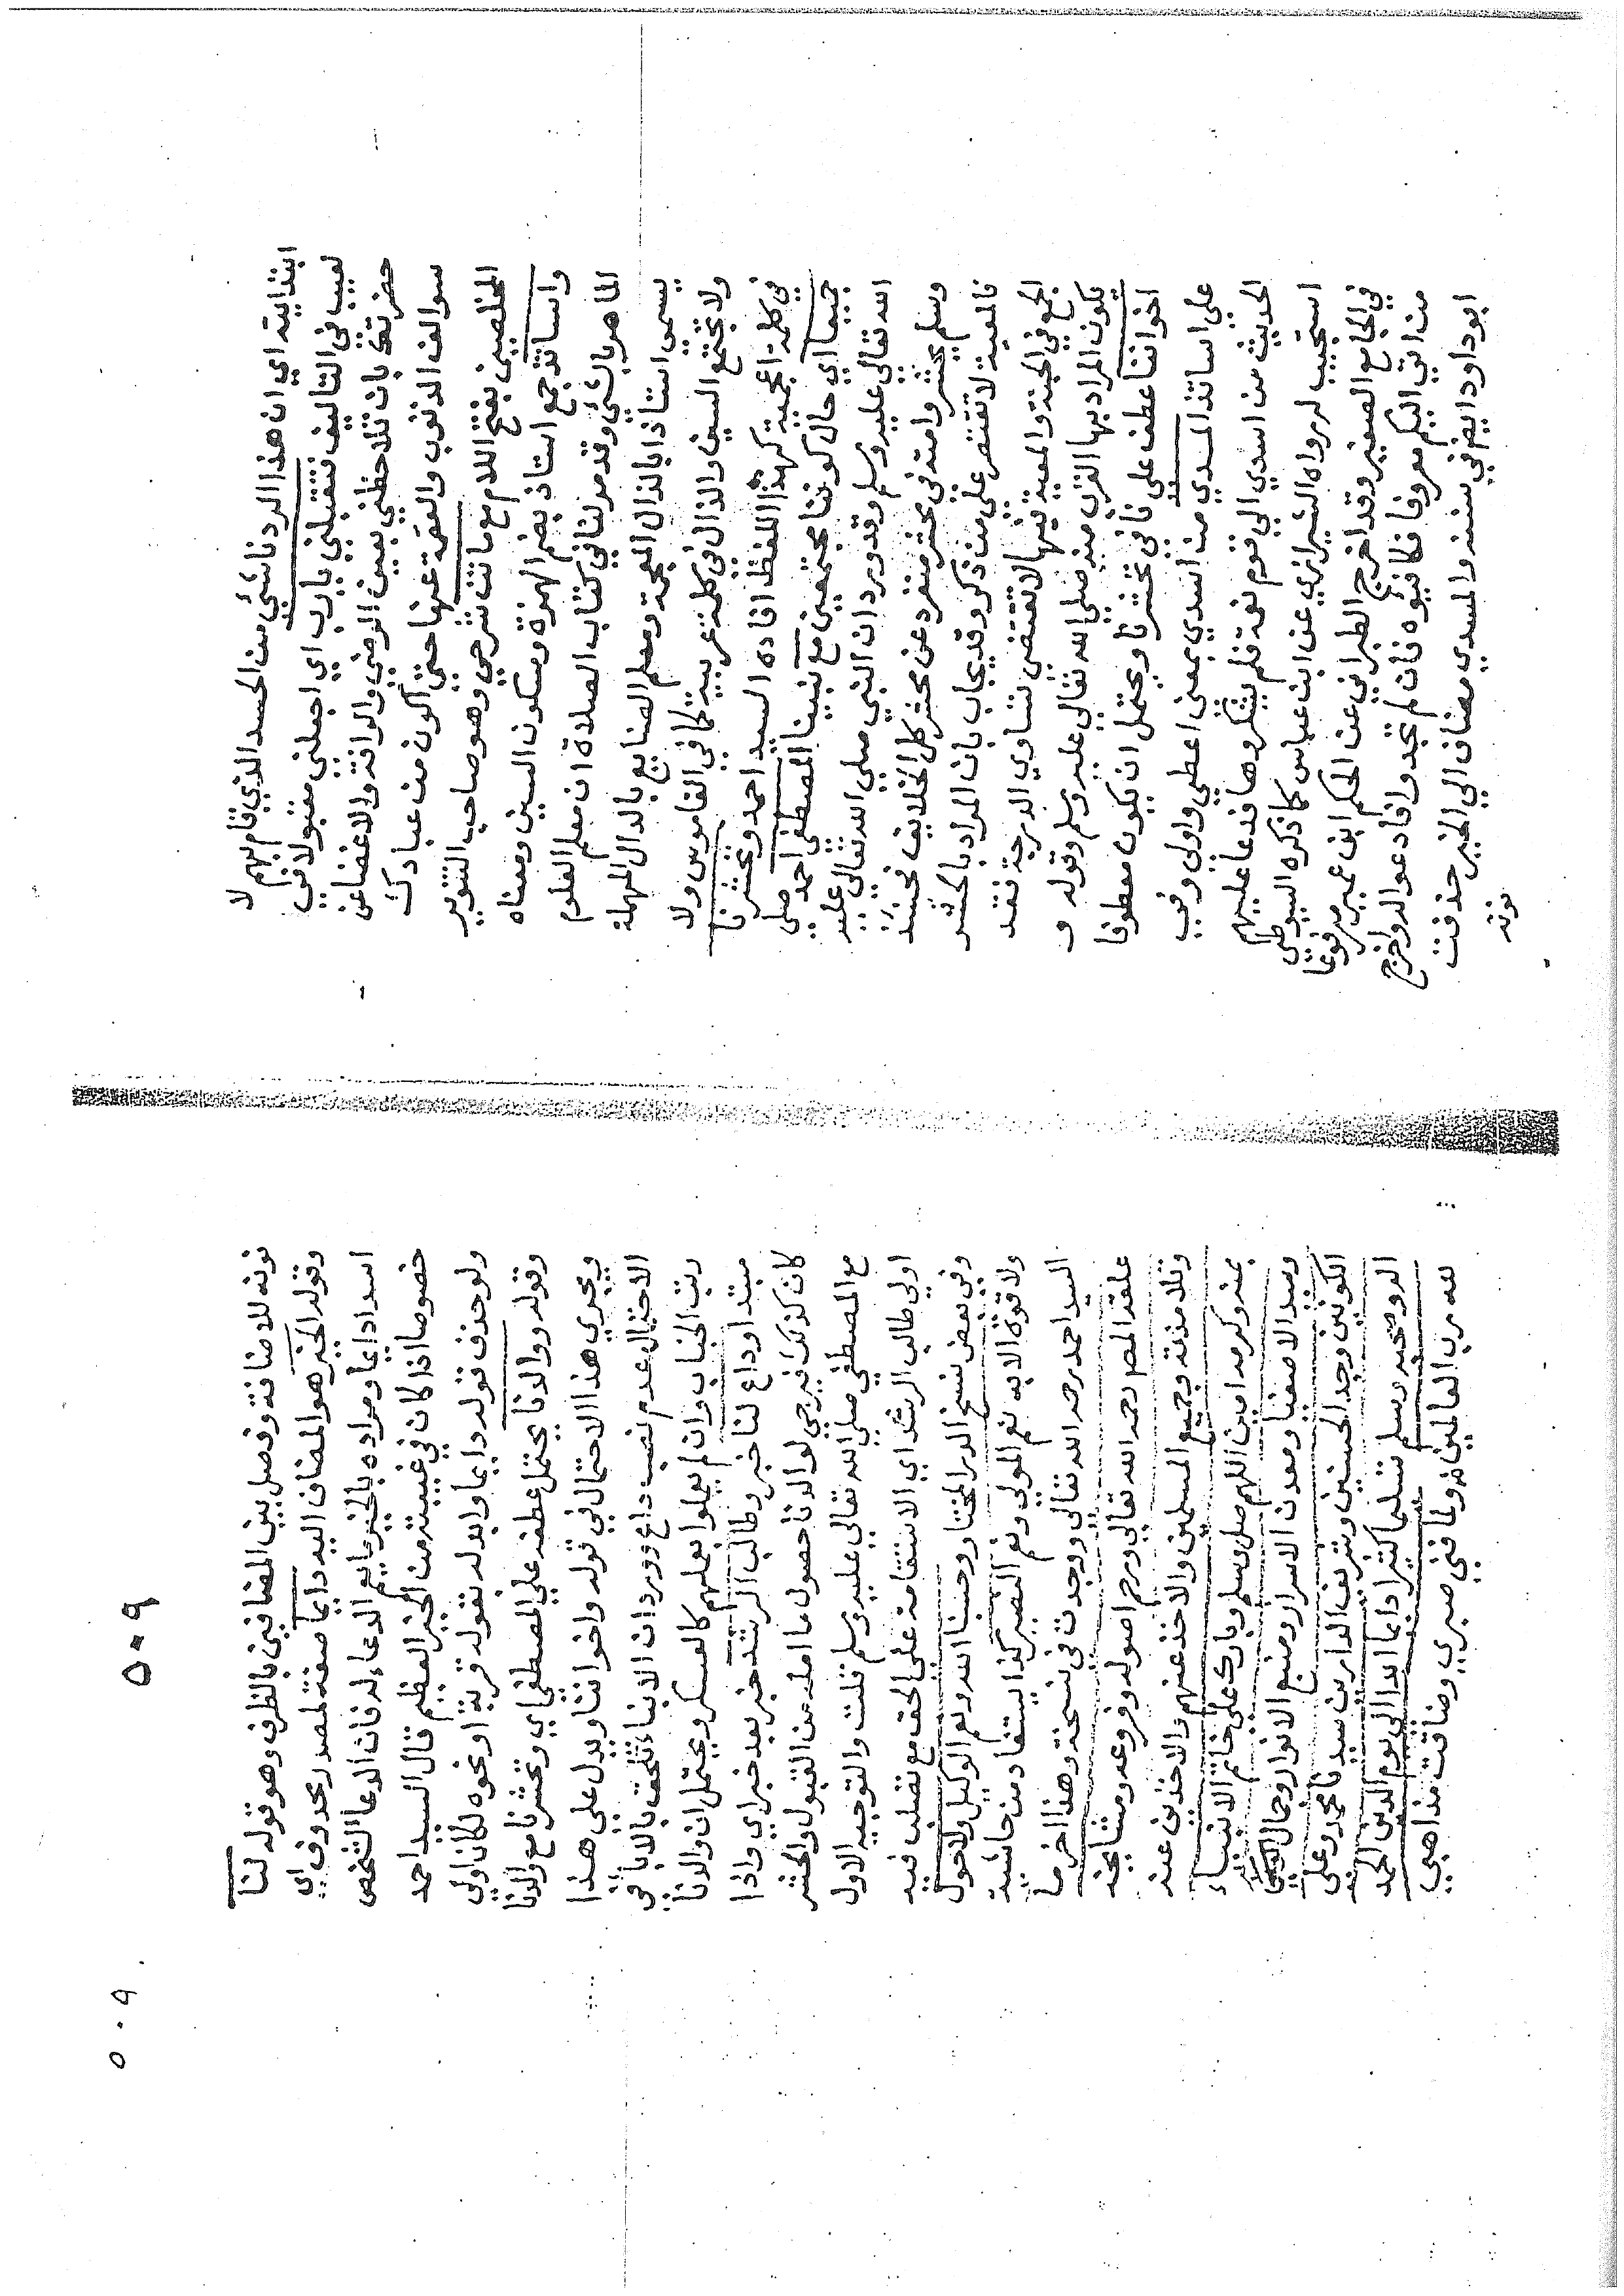 ابتدائية اي ان هذا الرد ناشئ من الحسد الذي قام بهم لا
لعيب في التاليف فتقبلني يارب اي اجعلني مقبولا في
حضرتك بان تلاحظني بعين الرضي والرافة والاغضا عن
سوالف الذنوب والعصمة عنها حتي اكون من عبادك
المخلصين بفتح اللام مع ماتن شرحي وهو صاحب التنوير
واساتذ جمع استاذ بضم الهمزة وسكون السين ومعناه
الماهر بالشئ وقد مر لنا في كتاب الصلاة ان معلم العلوم
يسمي استاذا بالذال المعجمة ومعلم الصنايع بالدال المهملة
ولا تجتمع السين والذال في كلمة عربية كما في القاموس ولا
في كلمة اعجمية كهذا اللفظ افاده السيد احمد وتحشرنا
جميعا اي حال كوننا مجتمعين مع نبينا المصطفي احمد صلي
الله تعالي عليه وسلم وقد ورد ان النبي صلي الله تعالي عليه
وسلم يحشر وامته في محشر منفرد عن محشر كل الخلايق فحينئذ
فالمعية لا تقتصر علي من ذكر وقد يجاب بان المراد بالحشر
الجمع في الجنة والمعية فيها لا تقتضي تساوي الدرجة فقد
يكون المراد بها القرب منه صلي الله تعالي عليه وسلم وقوله و
اخواننا عطف علي نا في تحشرنا ويحتمل ان يكون معطوفا
علي اساتذ المسدي من اسدي بمعني اعطي واولي وفي
الحديث من اسدي الي قوم نعمة فلم يشكروها فدعا عليهم
استجيب له رواه الشيرازي عن ابن عباس كما ذكره السيوطي
في الجامع الصغير وقد اخرج الطبراني عن الحكم ابن عمير مرفوعا
من اتي اليكم معروفا فكافيوه فان لم تجدوا فادعوا له واخرج
ابو داود ايضا في سننه والمسدي مضاف الي الخير حذفت
نونه
نونه للاضافة وفصل بين المضافين بالظرف وهو قوله لنا
وقوله الخير هو المضاف اليه دايما صفة لمصدر محذوف اي
اسدا دايما ومراده بالخير ما يعم الدعاء له فان الدعا لشخص
خصوصا اذا كان في غيبته من الخير العظيم قال السيد احمد
ولو حذف قوله دايما وابدله بقوله قربة او نحوه لكان اولي
وقوله ووالدنا يحتمل عطفه علي المصطفي اي وتحشرنا مع والدنا
ويجري هذا الاحتمال في قوله واخواننا ويدل علي هذا
الاحتمال عدم نصب داع وورد ان الابناء تلحق بالابا في
رتب الجنان وان لم يعملوا بعملهم كالعكس ويحتمل ان والدنا
مبتدا وداع لنا خبر وطالب الرشد خبر بعد خبر اي واذا
كان كذلك فيرجي لوالدنا حصول ما امله من القبول والحشر
مع المصطفي صلي الله تعالي عليه وسلم قلت والتوجيه الاول
اولي طالب الرشد اي الاستقامة علي الحق مع تصلب فيه
وفي بعض نسخ الدر المختار وحسبنا الله ونعم الوكيل ولا حول
ولا قوة الا به نعم المولي ونعم النصير كذا يستفاد من حاشية
السيد احمد رحمه الله تعالي ووجدت في نسخة وهذا اخر ما
علقه المص رحمه الله تعالي ورحم اصوله وفروعه ومشايخه
وتلامذته وجميع المسلمين والاخذ عنهم والاخذين عنه
بمنه وكرمه امين اللهم صل وسلم وبارك علي خاتم الانبياء
وسيد الاصفيا ومعدن الاسرار ومنبع الانوار وجمال
الكونين وجد الحسنين وشرف الدارين سيدنا محمد وعلي
اله وصحبه وسلم تسليما كثيرا دايما ابدا الي يوم الدين الحمد
لله رب العالمين ولما فني صبري وضاقت مذاهبي
٥٠٩
٥٠٩